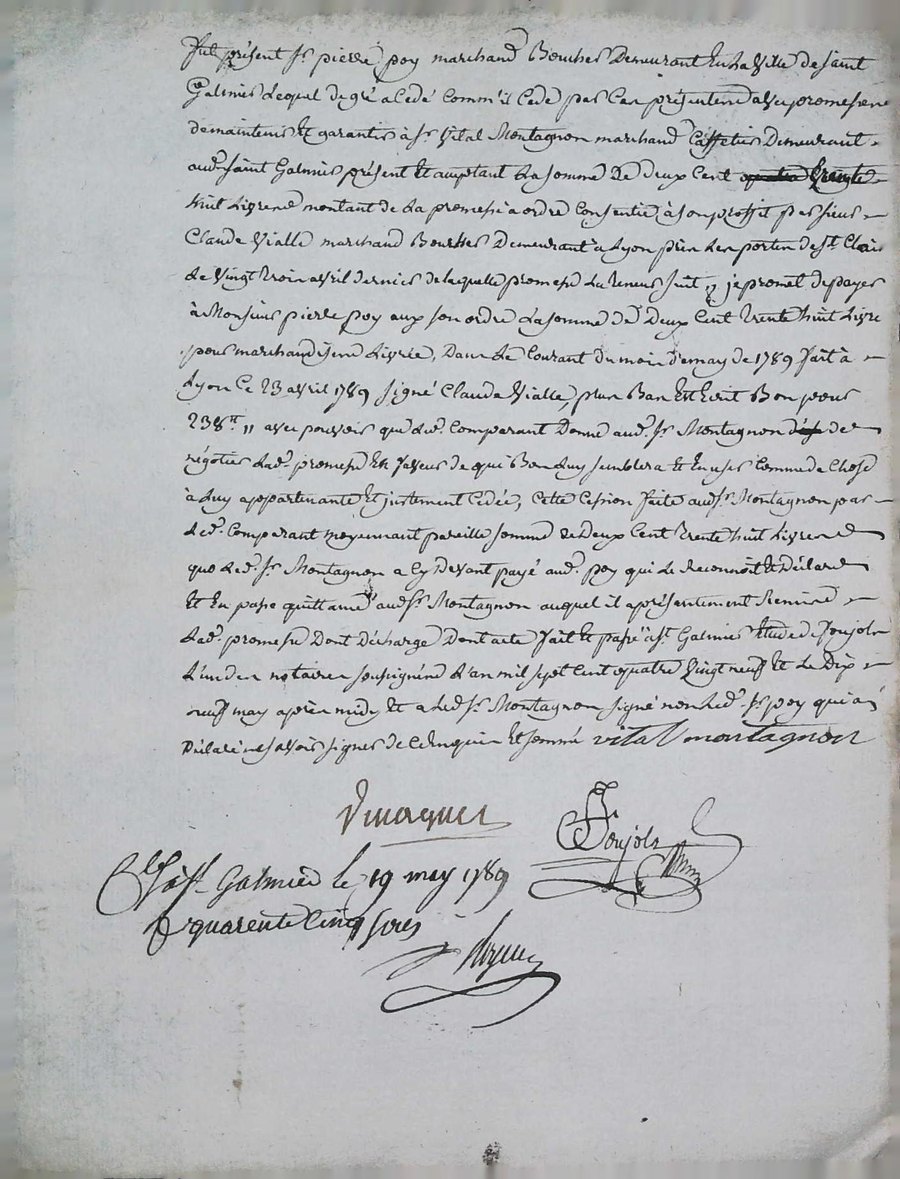 Fut présent Sr. pierre poy marchand Boucher Demeurant En La Ville de saint
Galmier Lequel de gré a Cedé comm'il Cede par Ces présentes avec promesse
de maintenir Et garantir à Sr. Vital Montagnon marchand Caffetier Demeurant
aud. saint Galmier présent Et aceptant La somme De deux Cent trente
huit Livres montant de La promesse à ordre Consentie à son proffit par sieur
Claude Vialle marchand Boucher Demeurant à Lyon près Les portes de St. Clair
Le Vingt trois avril dernier de laquelle promesse La teneur suit je promet de payer
à Monsieur pierre poy aux son ordre La somme de Deux Cent trente huit Livre
pour marchandises Livrée, Dans Le Courant du mois de may de 1789 fait à
Lyon Ce 23 avril 1789 signé Claude Vialle, plus Bas Est Ecrit Bon pour
238 tt avec pouvoir que Led. Comparant Donne aud. Sr. Montagnon de
négotier Lad. promesse En faveur de qui Bon Luy semblera Et En user Comme de Chose
à Luy appartenante Et justement Cedée, Cette Cession faite aud. Sr. Montagnon par
Led. Comparant moyennant pareille somme de Deux Cent trente huit Livres
que Led. Sr. Montagnon a Cy Devant payé aud. poy qui Le Reconnoit Et Déclare
Et En passe quittance aud. Sr. Montagnon auquel il a présentement Remis
Lad. promesse Dont Décharge Dont acte fait Et passé à St. Galmier Etude de Joujols
L'un des notaires soussignés L'an mil sept Cent quatre Vingt neuf Et Le Dix
neuf may après midy Et a Led. Sr. Montagnon signé non Led. Sr. poy qui a
Déclaré ne savoir signer de Ce Enquis Et sommé vital montagnon
Joujols
Clé à St. Galmier le 19 may 1789
R quarente Cinq sous